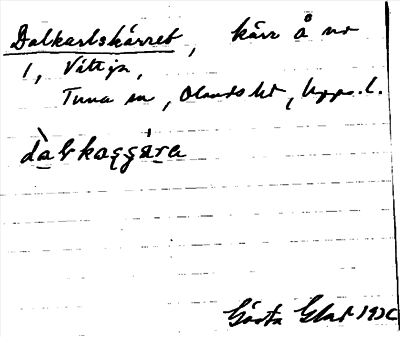 Dalkarlskärret, kärr å nr
1, Vättja,
Tuna sn, Olands hd, Upps. l.
dàlkaggára
Gösta